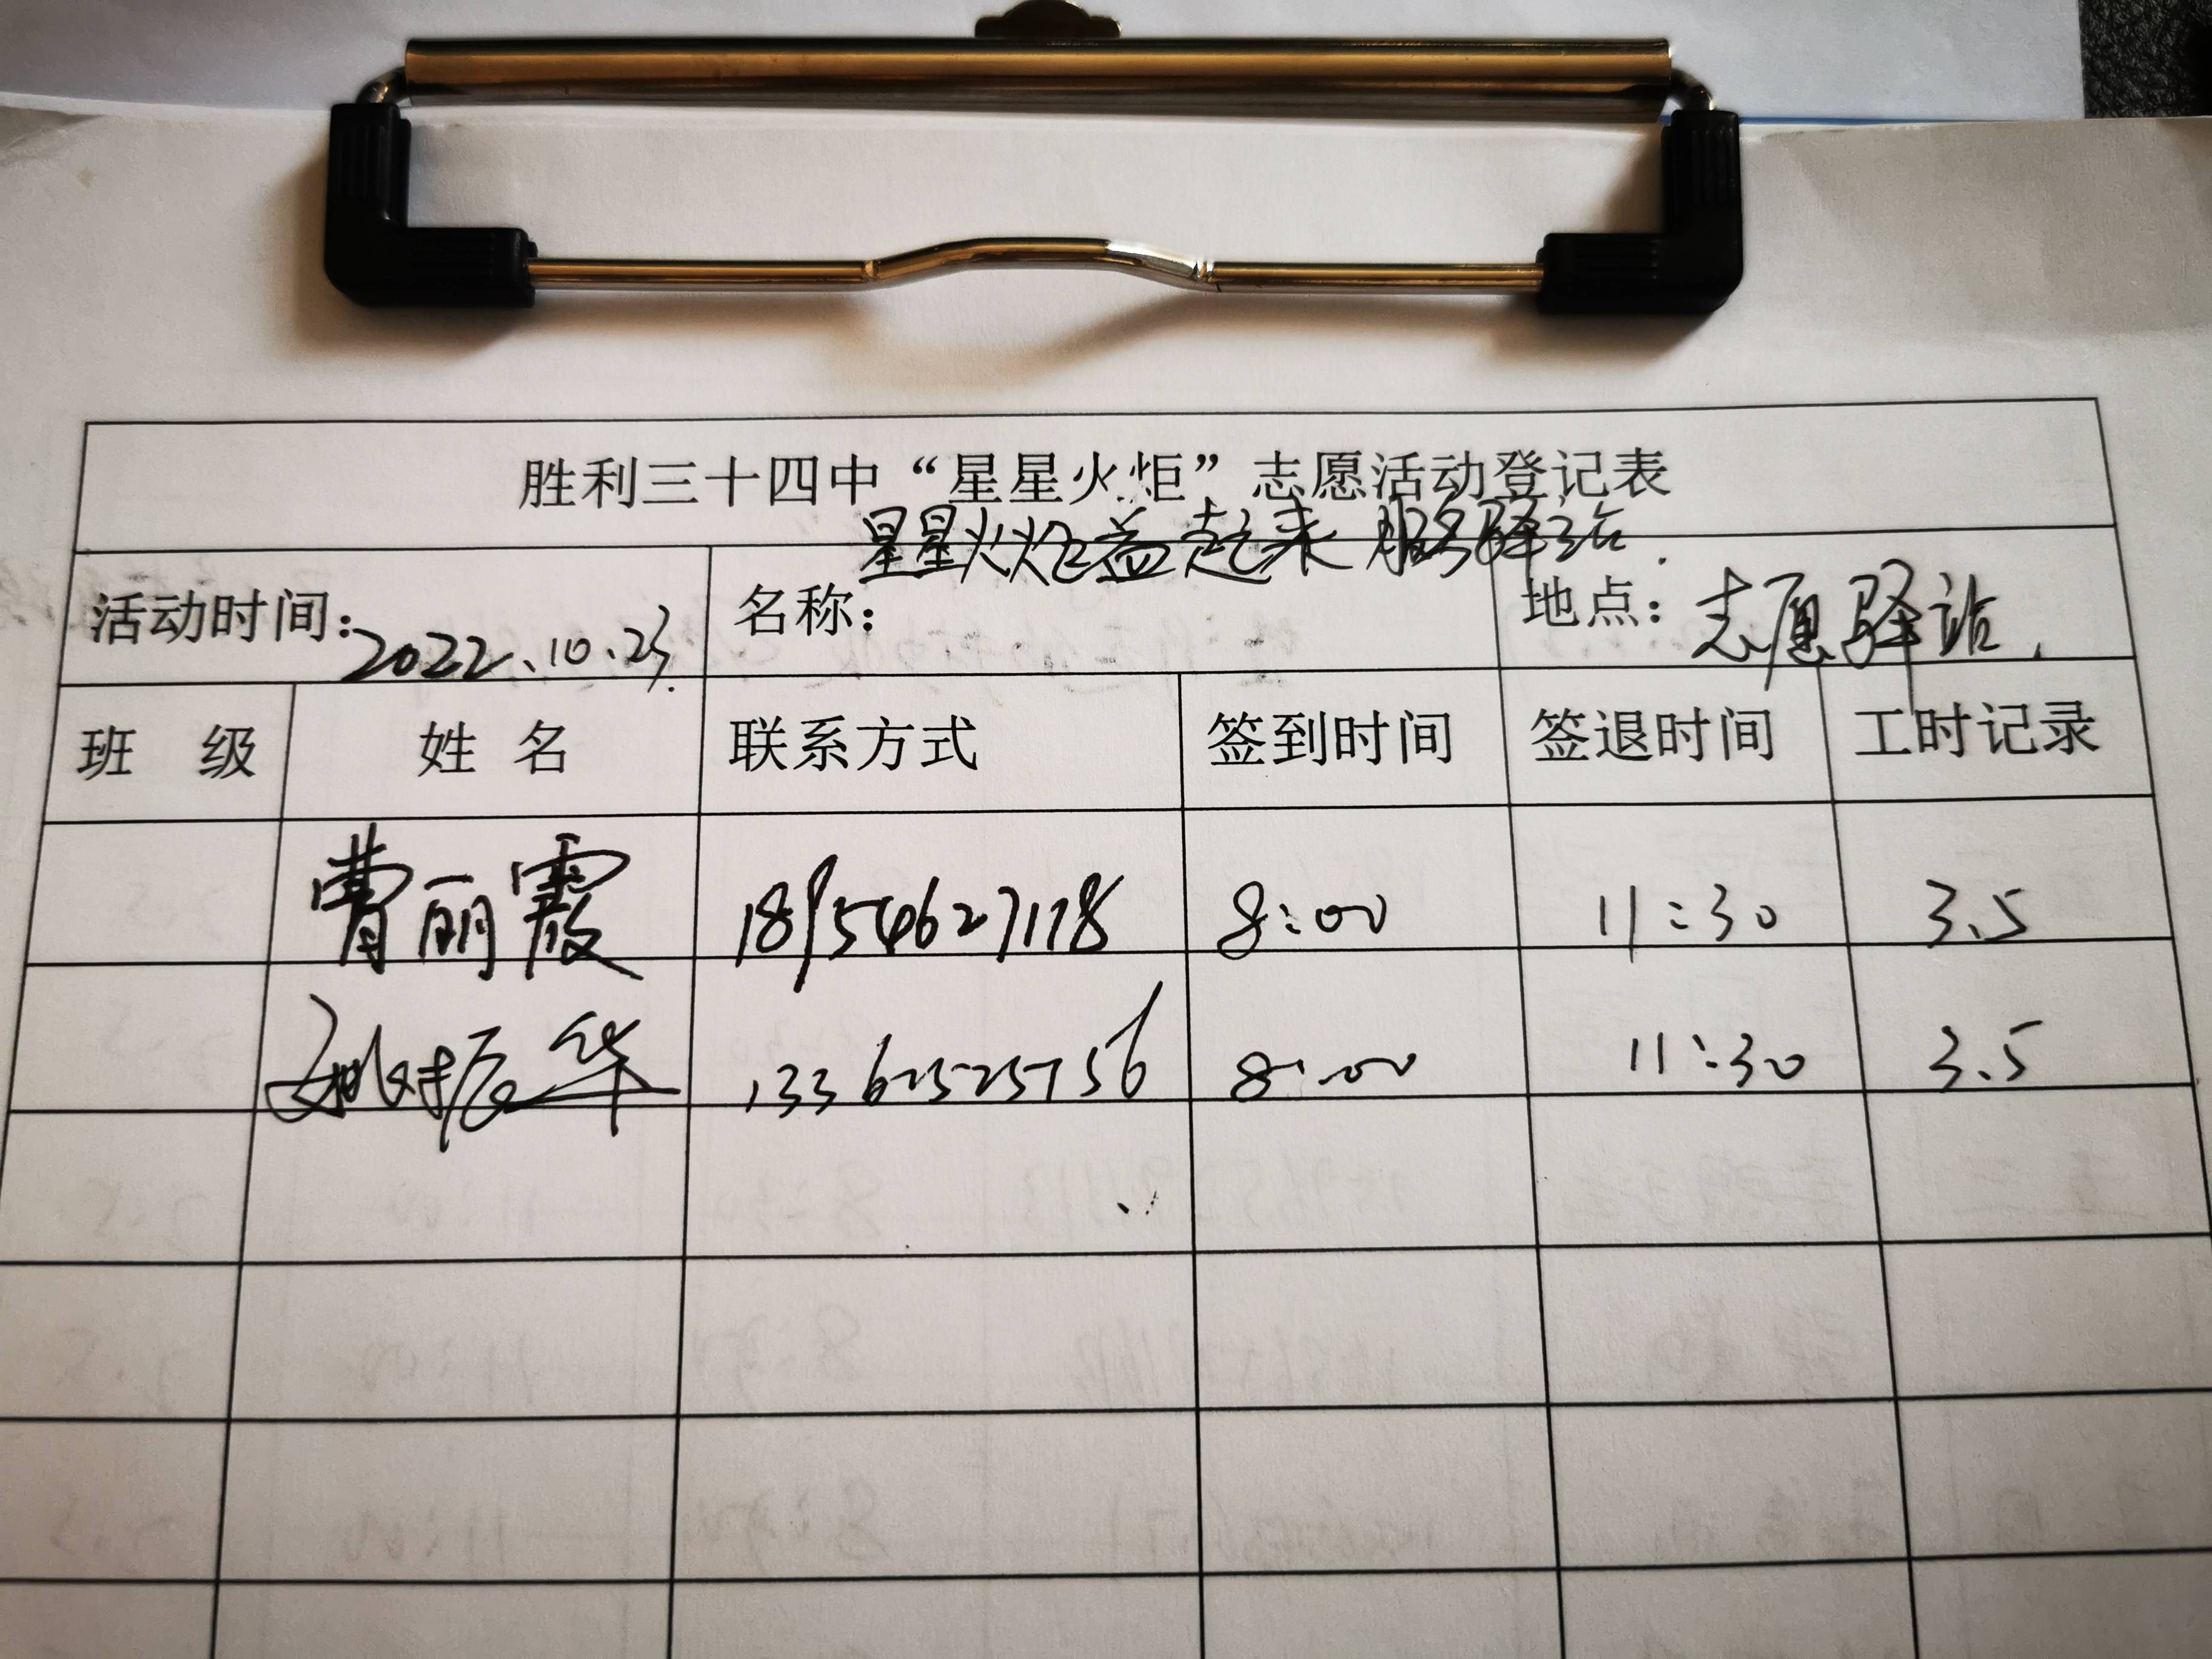 胜利三十四中“星星火炬”志愿活动登记表
星星火炬益起来 服务驿站.
活动时间: 2022.10.23. 名称: 地点: 志愿驿站.
班 级 姓 名 联系方式 签到时间 签退时间 工时记录
曹丽霞 18954627118 8:00 11:30 3.5
振华 8:00 11:30 3.5